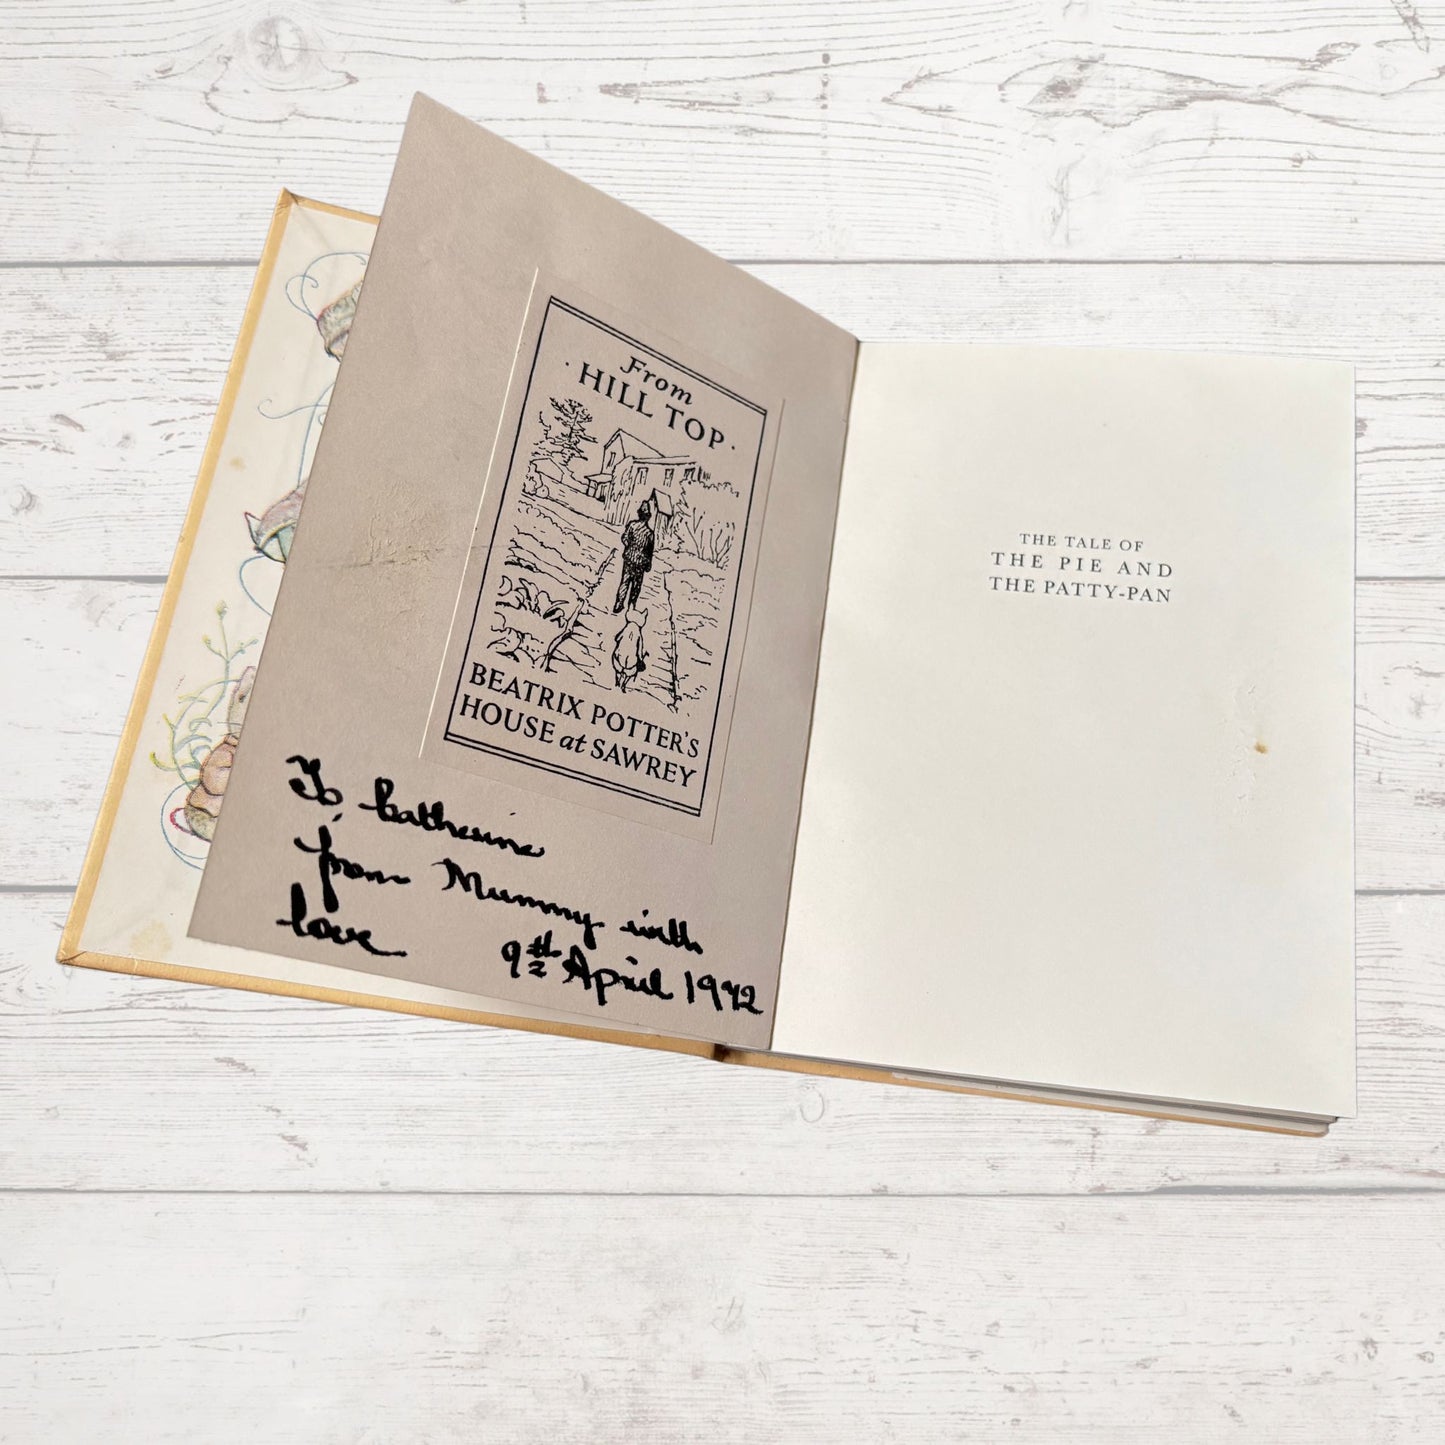 From
· HILL TOP ·
BEATRIX POTTER'S
HOUSE at SAWREY
To Catherine
from Mummy with
love 9th April 1992
THE TALE OF
THE PIE AND
THE PATTY-PAN